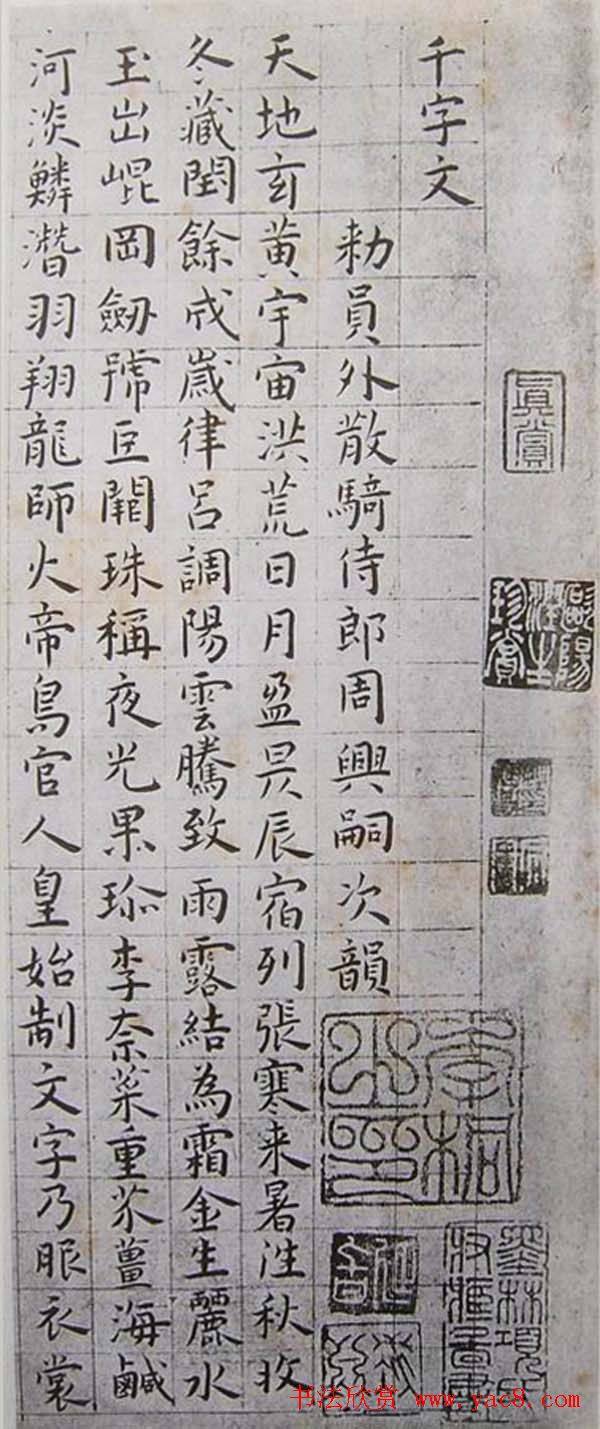 眞賞
千字文
勑員外散騎侍郎周興嗣次韻
天地玄黄宇宙洪荒日月盈昃辰宿列張寒来暑往秋收
冬藏閏餘成歲律呂調陽雲騰致雨露結為霜金生麗水
玉出崐岡劒號巨闕珠稱夜光果珎李柰菜重芥薑海鹹
河淡鱗潛羽翔龍師火帝鳥官人皇始制文字乃服衣裳
书法欣赏 www.yac8.com